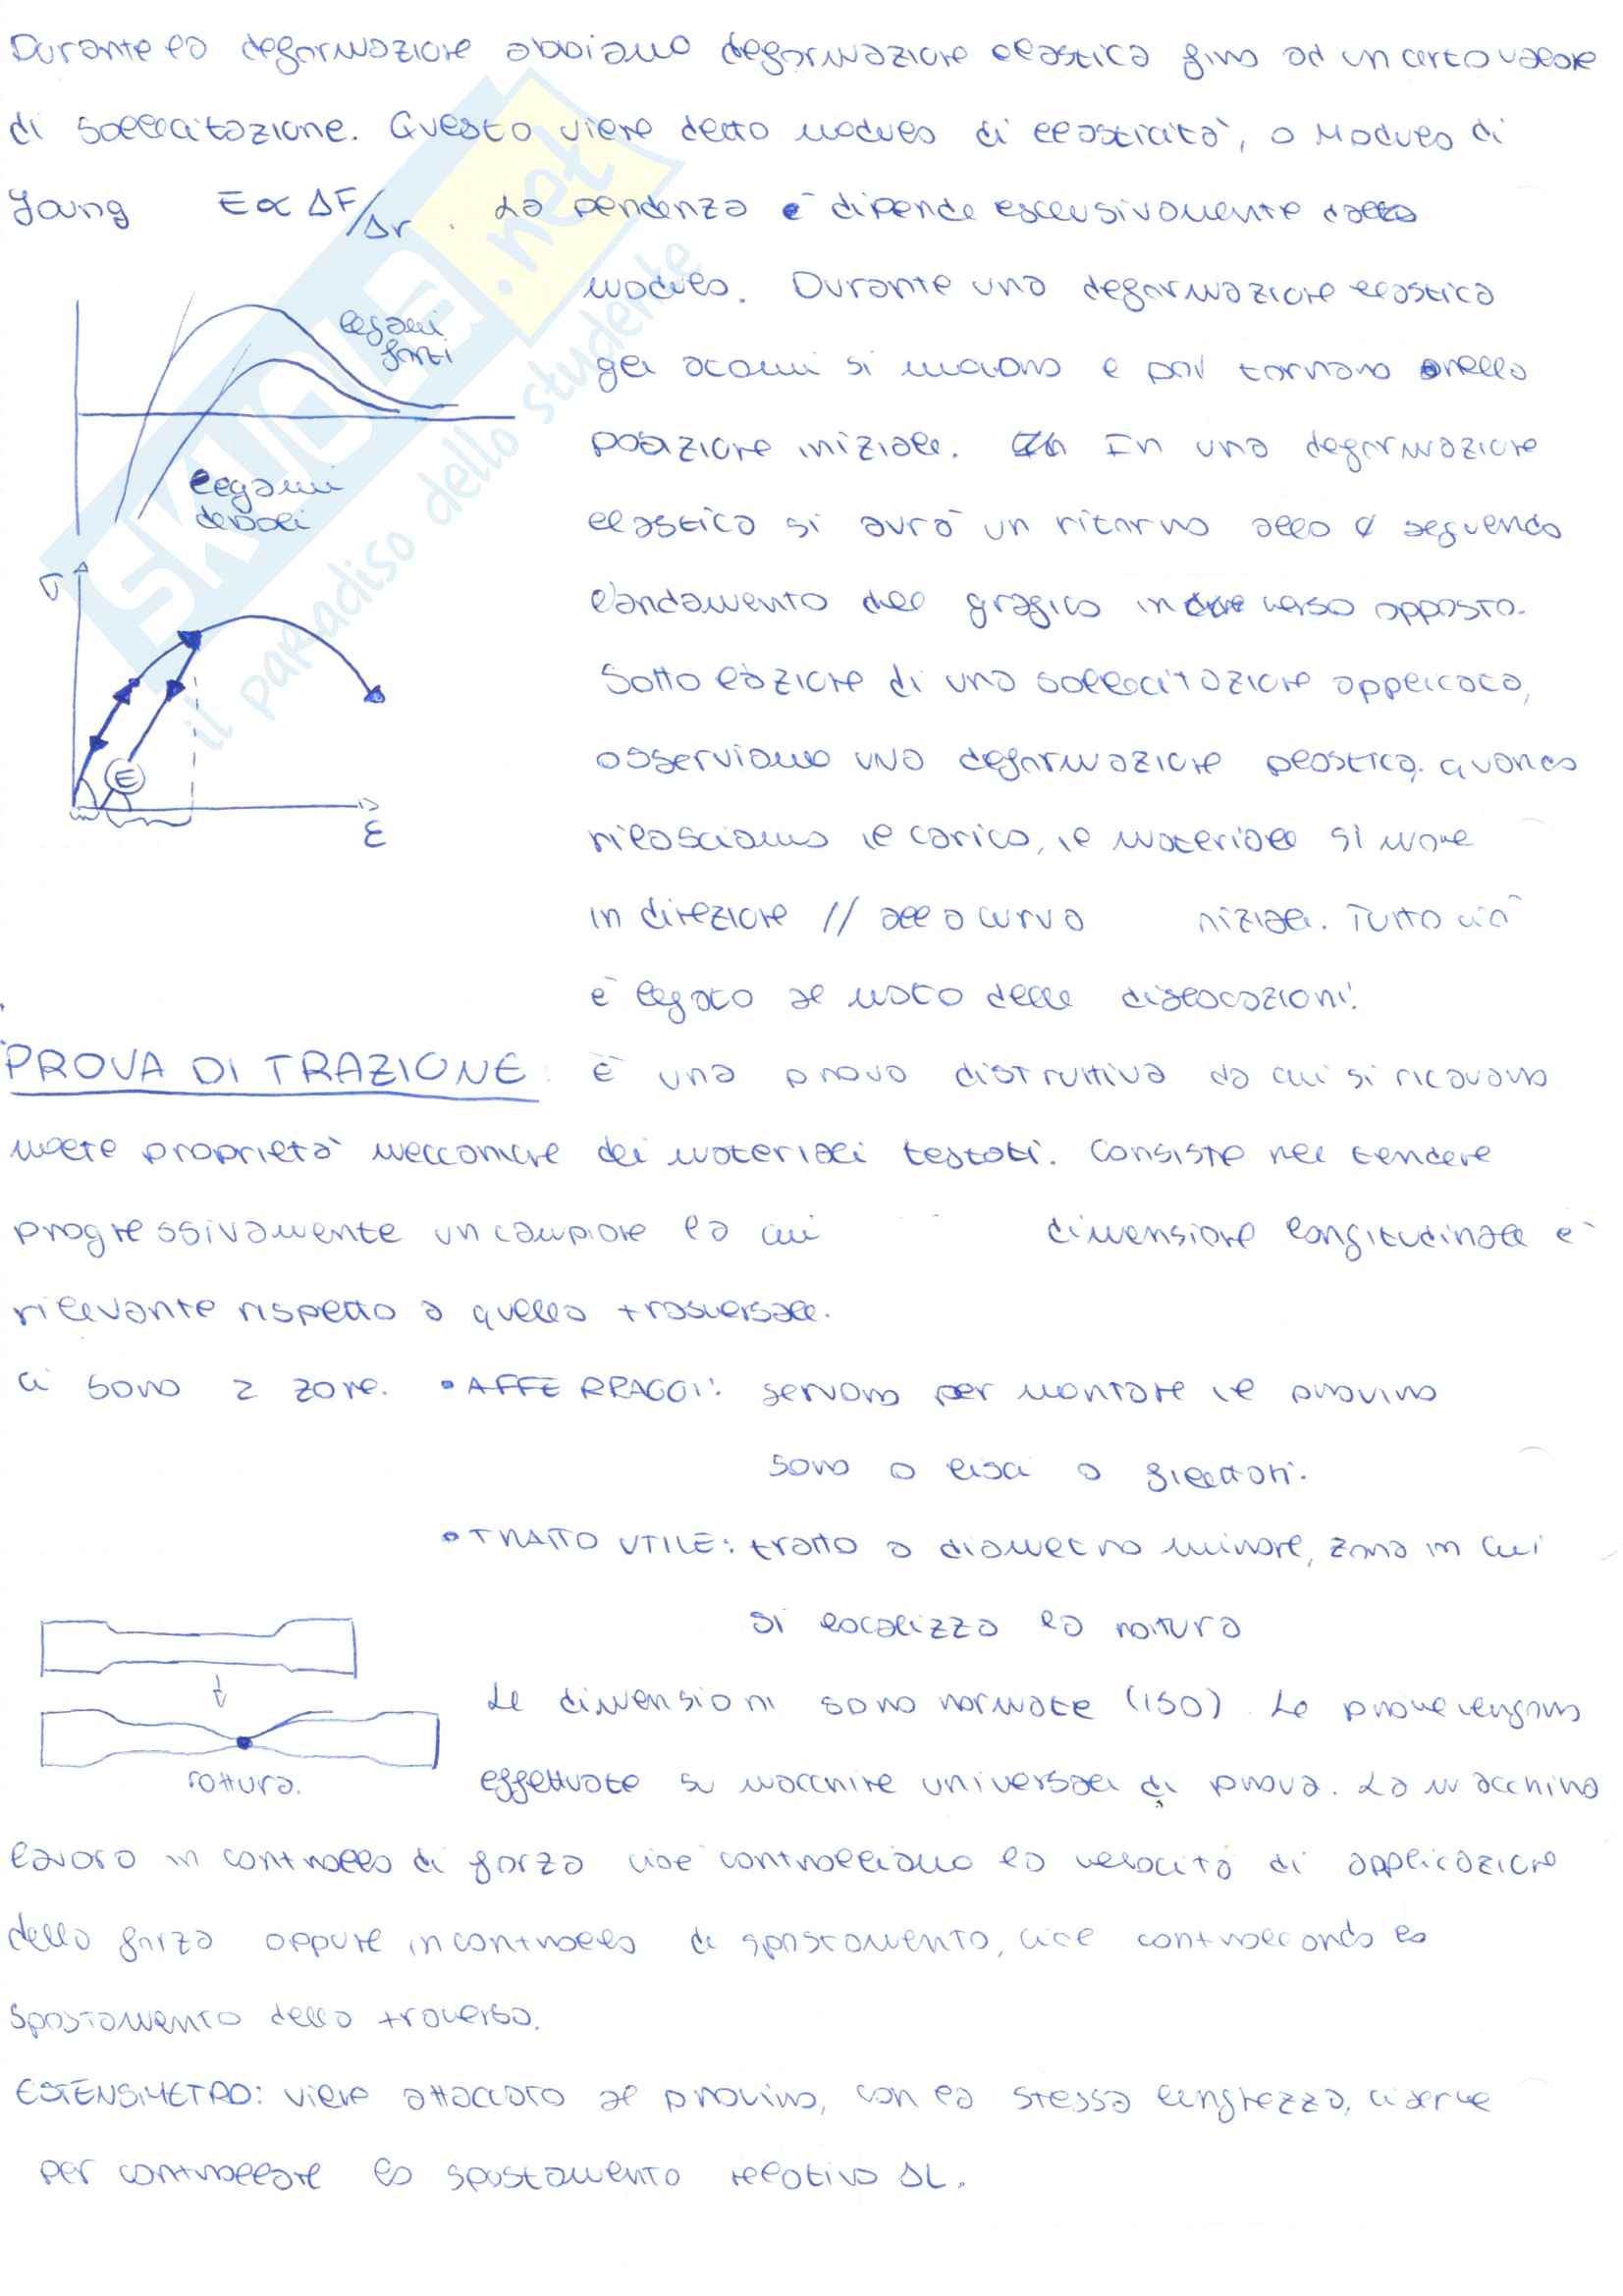 Durante la deformazione abbiamo deformazione elastica fino ad un certo valore
di sollecitazione. Questo viene detto modulo di elasticità, o Modulo di
Young E ∝ ΔF/Δr. La pendenza è dipende esclusivamente dal
modulo. Durante una deformazione elastica
gli atomi si muovono e poi tornano nella
posizione iniziale. In una deformazione
elastica si avrà un ritorno allo 0 seguendo
l'andamento del grafico in verso opposto.
Sotto l'azione di una sollecitazione applicata,
osserviamo una deformazione plastica. quando
rilasciamo il carico, il materiale si muove
in direzione // alla curva niziali. Tutto ciò
è legato al moto delle dislocazioni.
legami
forti
legami
deboli
σ
E
ε
PROVA DI TRAZIONE: è una prova distruttiva da cui si ricavano
molte proprietà meccaniche dei materiali testati. Consiste nel tendere
progressivamente un campione la cui dimensione longitudinale è
rilevante rispetto a quella trasversale.
Ci sono 2 zone. • AFFERRAGGI: servono per montare il provino
sono o lisci o filettati.
• TRATTO UTILE: tratto a diametro minore, zona in cui
si localizza la rottura
Le dimensioni sono normate (ISO). Le prove vengono
rottura.
effettuate su macchine universali di prova. La macchina
lavora in controllo di forza cioè controlliamo la velocità di applicazione
della forza oppure in controllo di spostamento, cioè controllando lo
spostamento della traversa.
ESTENSIMETRO: viene attaccato al provino, con la stessa lunghezza, ci serve
per controllare lo spostamento relativo ΔL.
SKUOLA.net
il paradiso dello studente